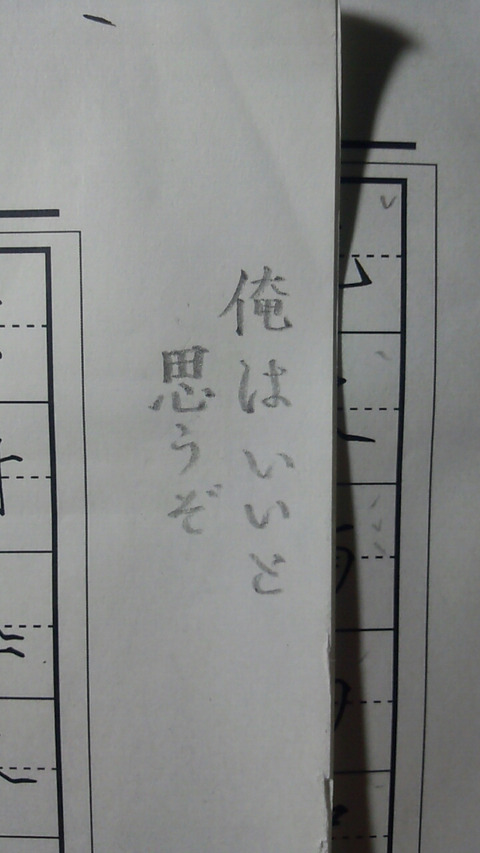 俺はいいと
思うぞ